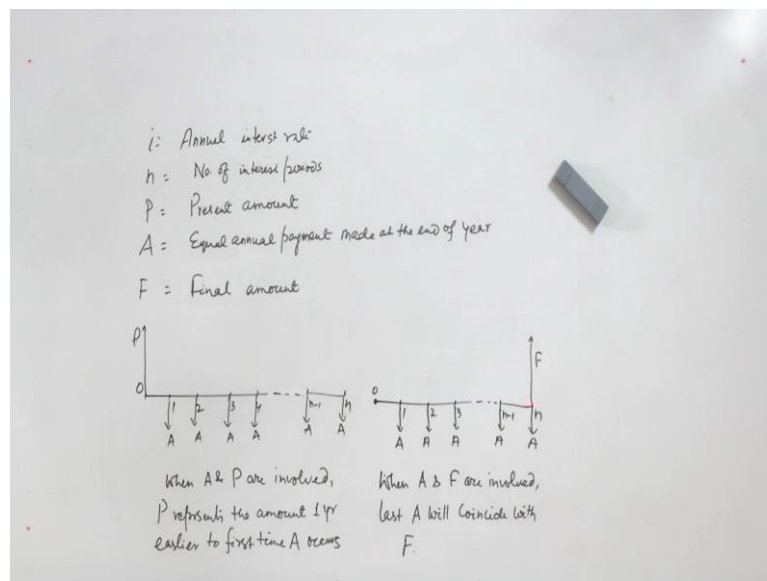 i: Annual interst rate
n = No. of interest periods
P = Present amount
A = Equal annual payment made at the end of year
F = Final amount
P
0 1 2 3 4 n-1 n
A A A A A A
When A & P are involved,
P represents the amount 1 yr
earlier to first time A occurs
F
0 1 2 3 n-1 n
A A A A A
When A & F are involved,
last A will Coincide with
F.